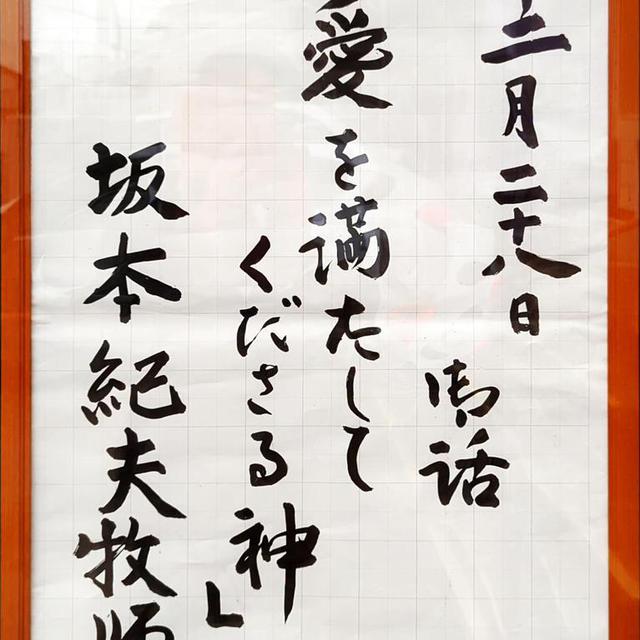 十二月二十八日
御話
愛を満たして
くださる神」
坂本紀夫牧師